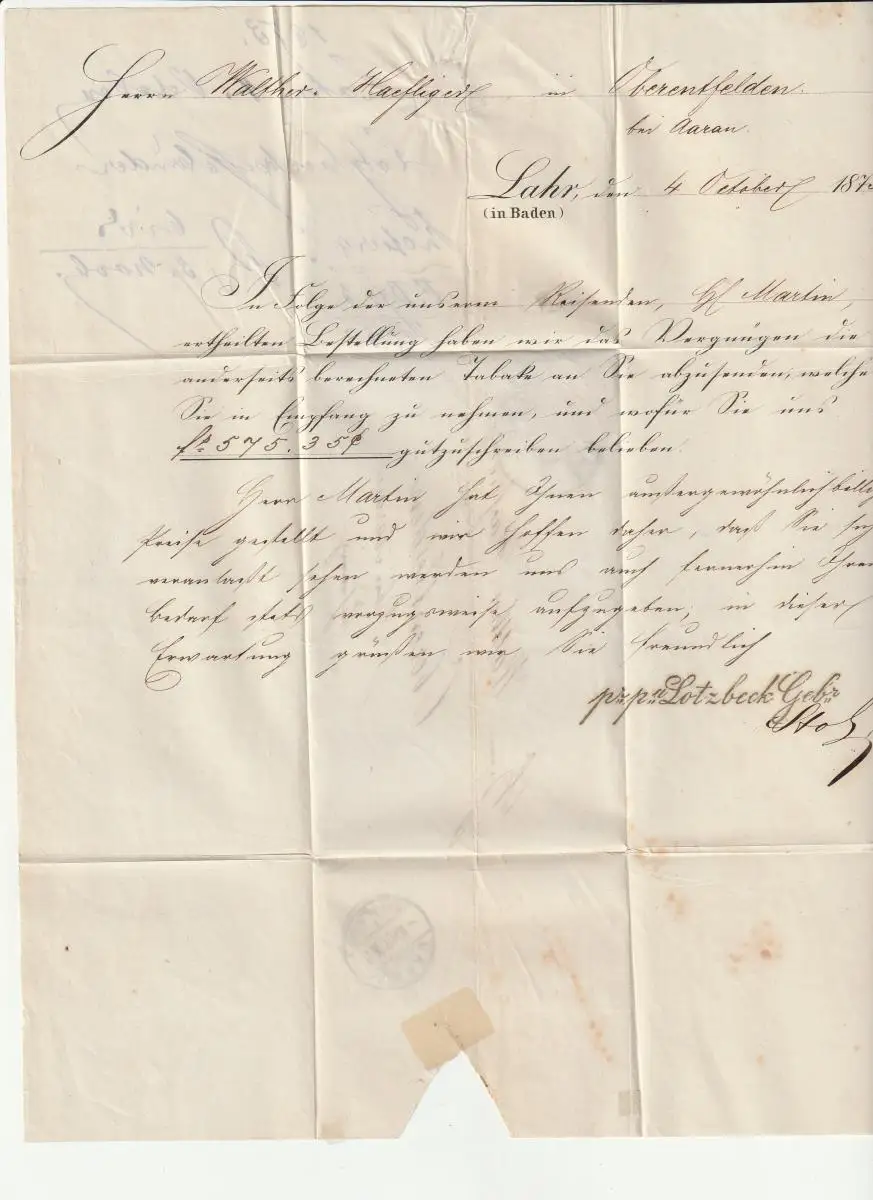 Herrn Walther Haefliger in Oberentfelden.
bei Aarau.
Lahr, den 4 October 187
(in Baden)
In Folge der unserem Reisenden, H Martin,
ertheilten Bestellung haben wir das Vergnügen die
anderseits berechneten Tabake an Sie abzusenden, welche
Sie in Empfang zu nehmen, und wofür Sie uns
frs 575. 35 gutzuschreiben belieben.
Herr Martin hat Ihnen außergewöhnlich billige
Preise gestellt und wir hoffen daher, daß Sie sich
veranlaßt sehen werden uns auch fernerhin Ihren
Bedarf stets vorzugsweise aufzugeben; in dieser
Erwartung grüßen wir Sie freundlich
pr. pa. Lotzbeck Gebr.